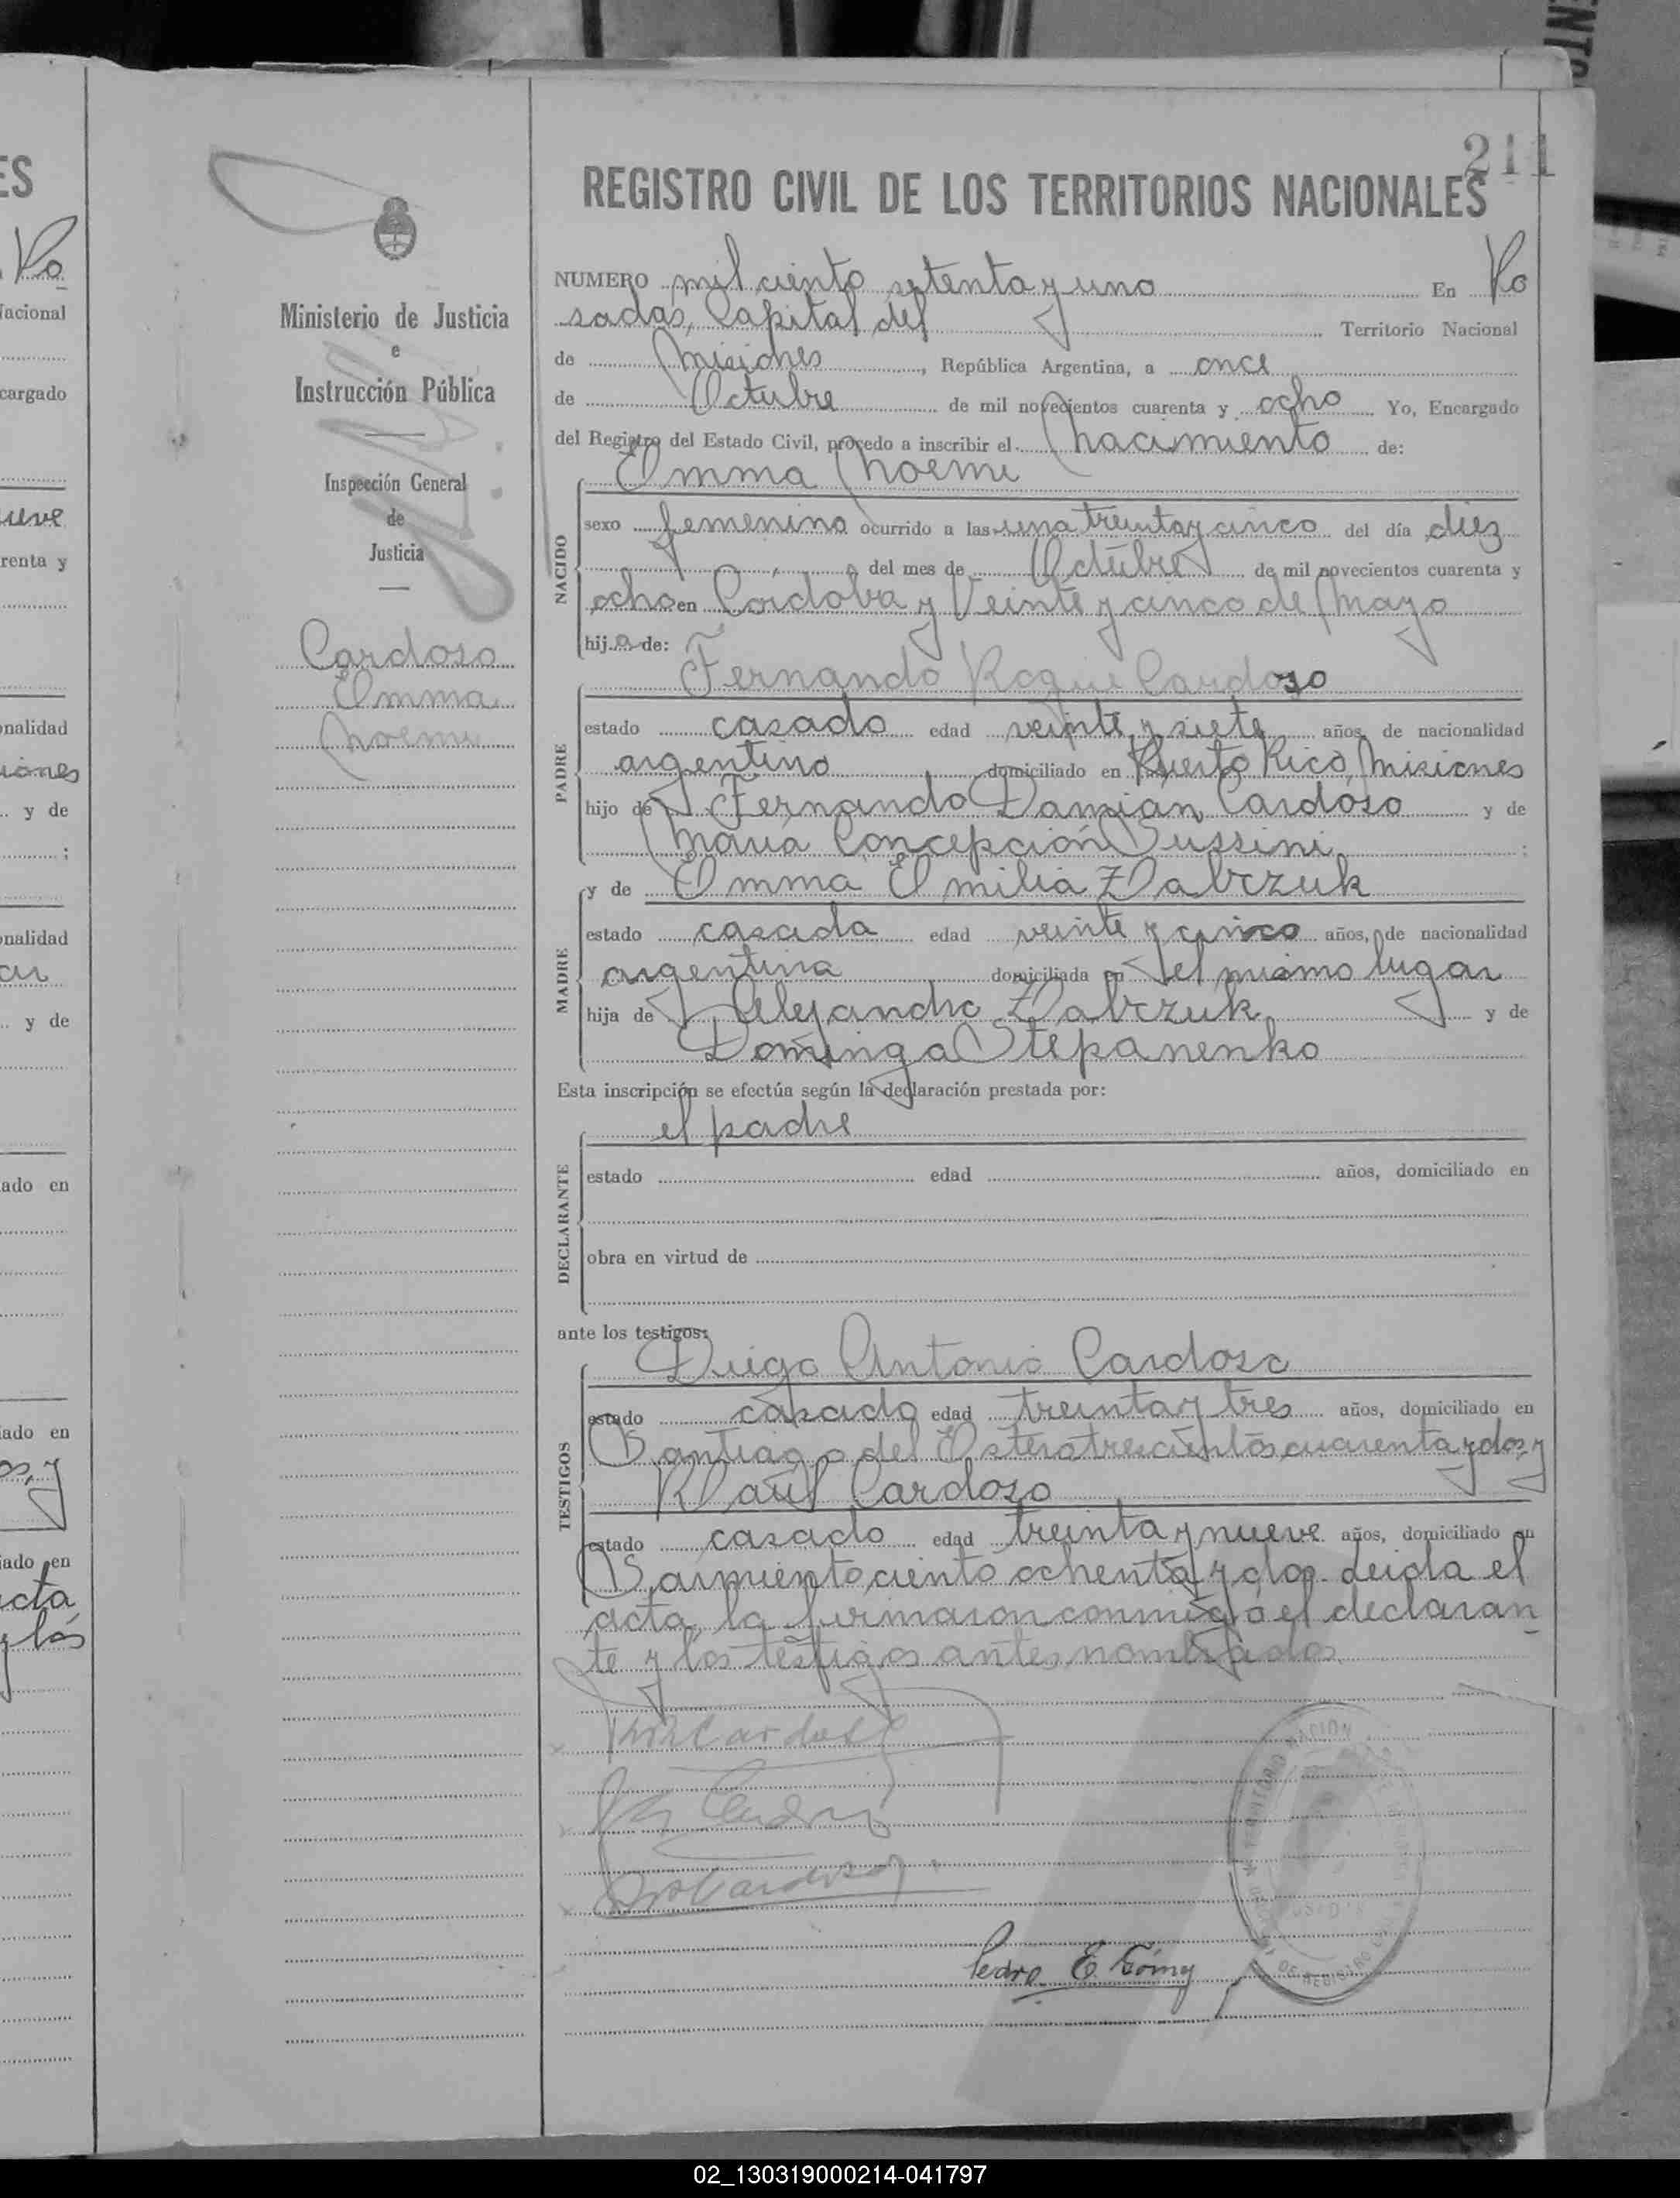 ES
Po
Nacional
cargado
ueve
renta y
onalidad
iones
y de
;
onalidad
ar
y de
ado en
iado en
os, y
iado en
acta
y los
Ministerio de Justicia
e
Instrucción Pública
Inspección General
de
Justicia
Cardoso
Emma
Noemi
211
REGISTRO CIVIL DE LOS TERRITORIOS NACIONALES
NUMERO mil ciento setenta y uno En Po
sadas, Capital del Territorio Nacional
de Misiones, República Argentina, a once
de Octubre de mil novecientos cuarenta y ocho Yo, Encargado
del Registro del Estado Civil, procedo a inscribir el Nacimiento de:
Emma Noemi
NACIDO
sexo femenino ocurrido a las una treinta y cinco del día diez
del mes de Octubre de mil novecientos cuarenta y
ocho en Córdoba y Veinte y cinco de Mayo
hija de:
Fernando Roque Cardozo
PADRE
estado casado edad veinte y siete años, de nacionalidad
argentino domiciliado en Puerto Rico, Misiones
hijo de Fernando Damián Cardoso y de
María Concepción Bussini;
y de Emma Emilia Dabrzuk
MADRE
estado casada edad veinte y cinco años, de nacionalidad
argentina domiciliada en el mismo lugar
hija de Alejandro Dabrzuk y de
Dominga Stepanenko
Esta inscripción se efectúa según la declaración prestada por:
el padre
DECLARANTE
estado edad años, domiciliado en
obra en virtud de
ante los testigos:
Diego Antonio Cardoso
TESTIGOS
estado casado edad treinta y tres años, domiciliado en
Santiago del Estero trescientos cuarenta y dos, y
Raúl Cardoso
estado casado edad treinta y nueve años, domiciliado en
Sarmiento ciento ochenta y dos. Leida el
acta, la firmaron conmigo el declaran
te y los testigos antes nombrados.
Cardoso
Cardoso
Pedro E. Gómez
02_130319000214-041797